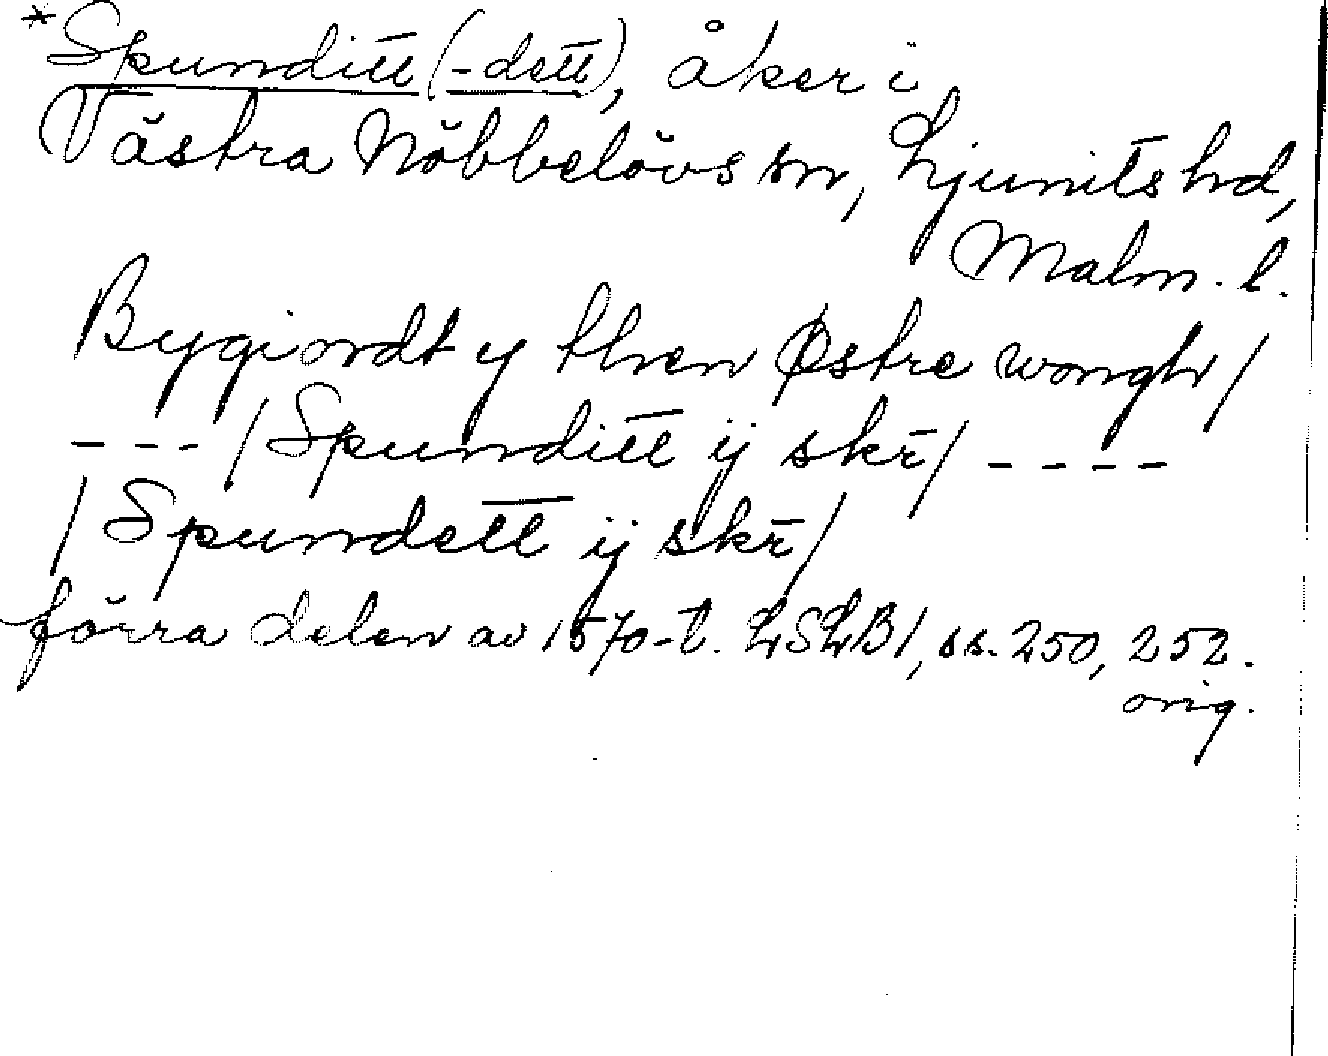 *Spunditt (-dett), åker i
Västra Nöbbelövs sn, Ljunits hd,
Malm. l.
Bygiordt y then Østre wongh/
- - - /Spunditt ij skr̄/ - - - -
/Spundett ij skr̄/
förra delen av 1570-t. LSLB1, ss. 250, 252.
orig.